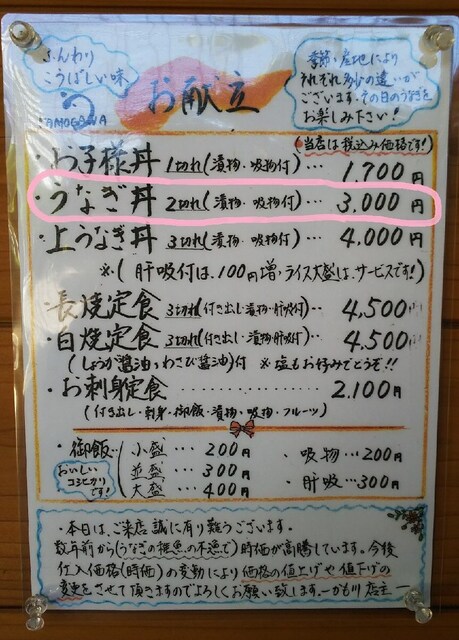 ふんわり
こうばしい味
KAMOGAWA
お献立
季節・産地により
それぞれ多少の違いが
ございます。その日のうなぎを
お楽しみ下さい!
(当店は税込み価格です!)
・お子様丼 1切れ(漬物・吸物付)… 1,700円
・うなぎ丼 2切れ(漬物・吸物付)… 3,000円
・上うなぎ丼 3切れ(漬物・吸物付)… 4,000円
※(肝吸付は、100円増・ライス大盛は、サービスです!)
・長焼定食 3切れ(付き出し・漬物・肝吸付)‥ 4,500円
・白焼定食 3切れ(付き出し・漬物・肝吸付)‥ 4,500円
(しょうが醤油・わさび醤油)付 ※塩もお好みでどうぞ!!
・お刺身定食 ………… 2,100円
(付き出し・刺身・御飯・漬物・吸物・フルーツ)
・御飯…
小盛 … 200円
並盛 … 300円
大盛 … 400円
おいしい
コシヒカリ
です!
・吸物…200円
・肝吸…300円
・本日は、ご来店誠に有り難うございます。
数年前から(うなぎの稚魚の不漁で)時価が高騰しています。今後
仕入価格(時価)の変動により価格の値上げや値下げの
変更をさせて頂きますのでよろしくお願い致します。ーかも川 店主ー